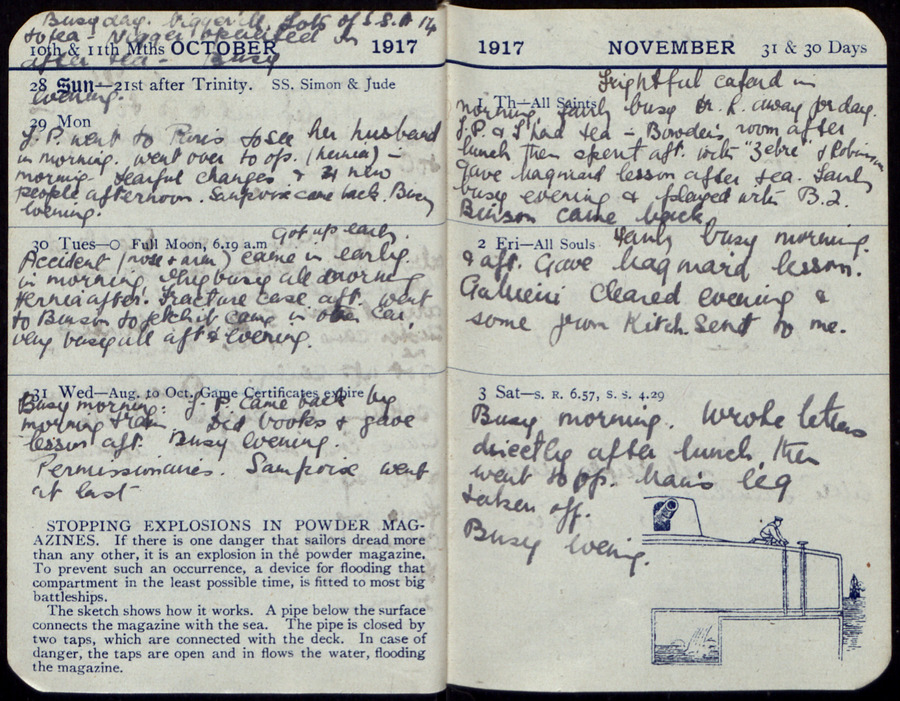 Busy day. Lots of S.S.A 14
to tea. in
10th & 11th Mths OCTOBER 1917
after tea - Busy
28 Sun—21st after Trinity. SS. Simon & Jude
evening.
29 Mon
J.P. went to Paris to see her husband
in morning. went over to op. (hernia) -
morning tearful changes & 21 new
people afternoon. came back. Busy
evening.
30 Tues—O Full Moon, 6.19 a.m Got up early.
Accident (nose & arm) came in early
in morning. busy all morning
Hernia after. Fracture case aft. went
to Binson to fetch it came in car,
very busy all aft & evening.
31 Wed—Aug. 10 Oct. Game Certificates expire
Busy morning. J.P. came back by
morning train Did books & gave
lesson aft. Busy evening.
Permissionaires. went
at last
STOPPING EXPLOSIONS IN POWDER MAG-
AZINES. If there is one danger that sailors dread more
than any other, it is an explosion in the powder magazine.
To prevent such an occurrence, a device for flooding that
compartment in the least possible time, is fitted to most big
battleships.
The sketch shows how it works. A pipe below the surface
connects the magazine with the sea. The pipe is closed by
two taps, which are connected with the deck. In case of
danger, the taps are open and in flows the water, flooding
the magazine.
1917 NOVEMBER 31 & 30 Days
Frightful cafard in
1 Th—All Saints
morning fairly busy Dr. R. away for day.
J.P. & I had tea - Bowden's room after
lunch then spent aft. with "Zebre" & Robinson
Gave lesson after tea. Fairly
busy evening & played with B.2.
Binson came back
2 Fri—All Souls Fairly busy morning
& aft. Gave lesson.
cleared evening &
some from Kitch. Sent to me.
3 Sat—S. R. 6.57, S. S. 4.29
Busy morning. Wrote letters
directly after lunch, then
went to op. Man's leg
taken off.
Busy evening.